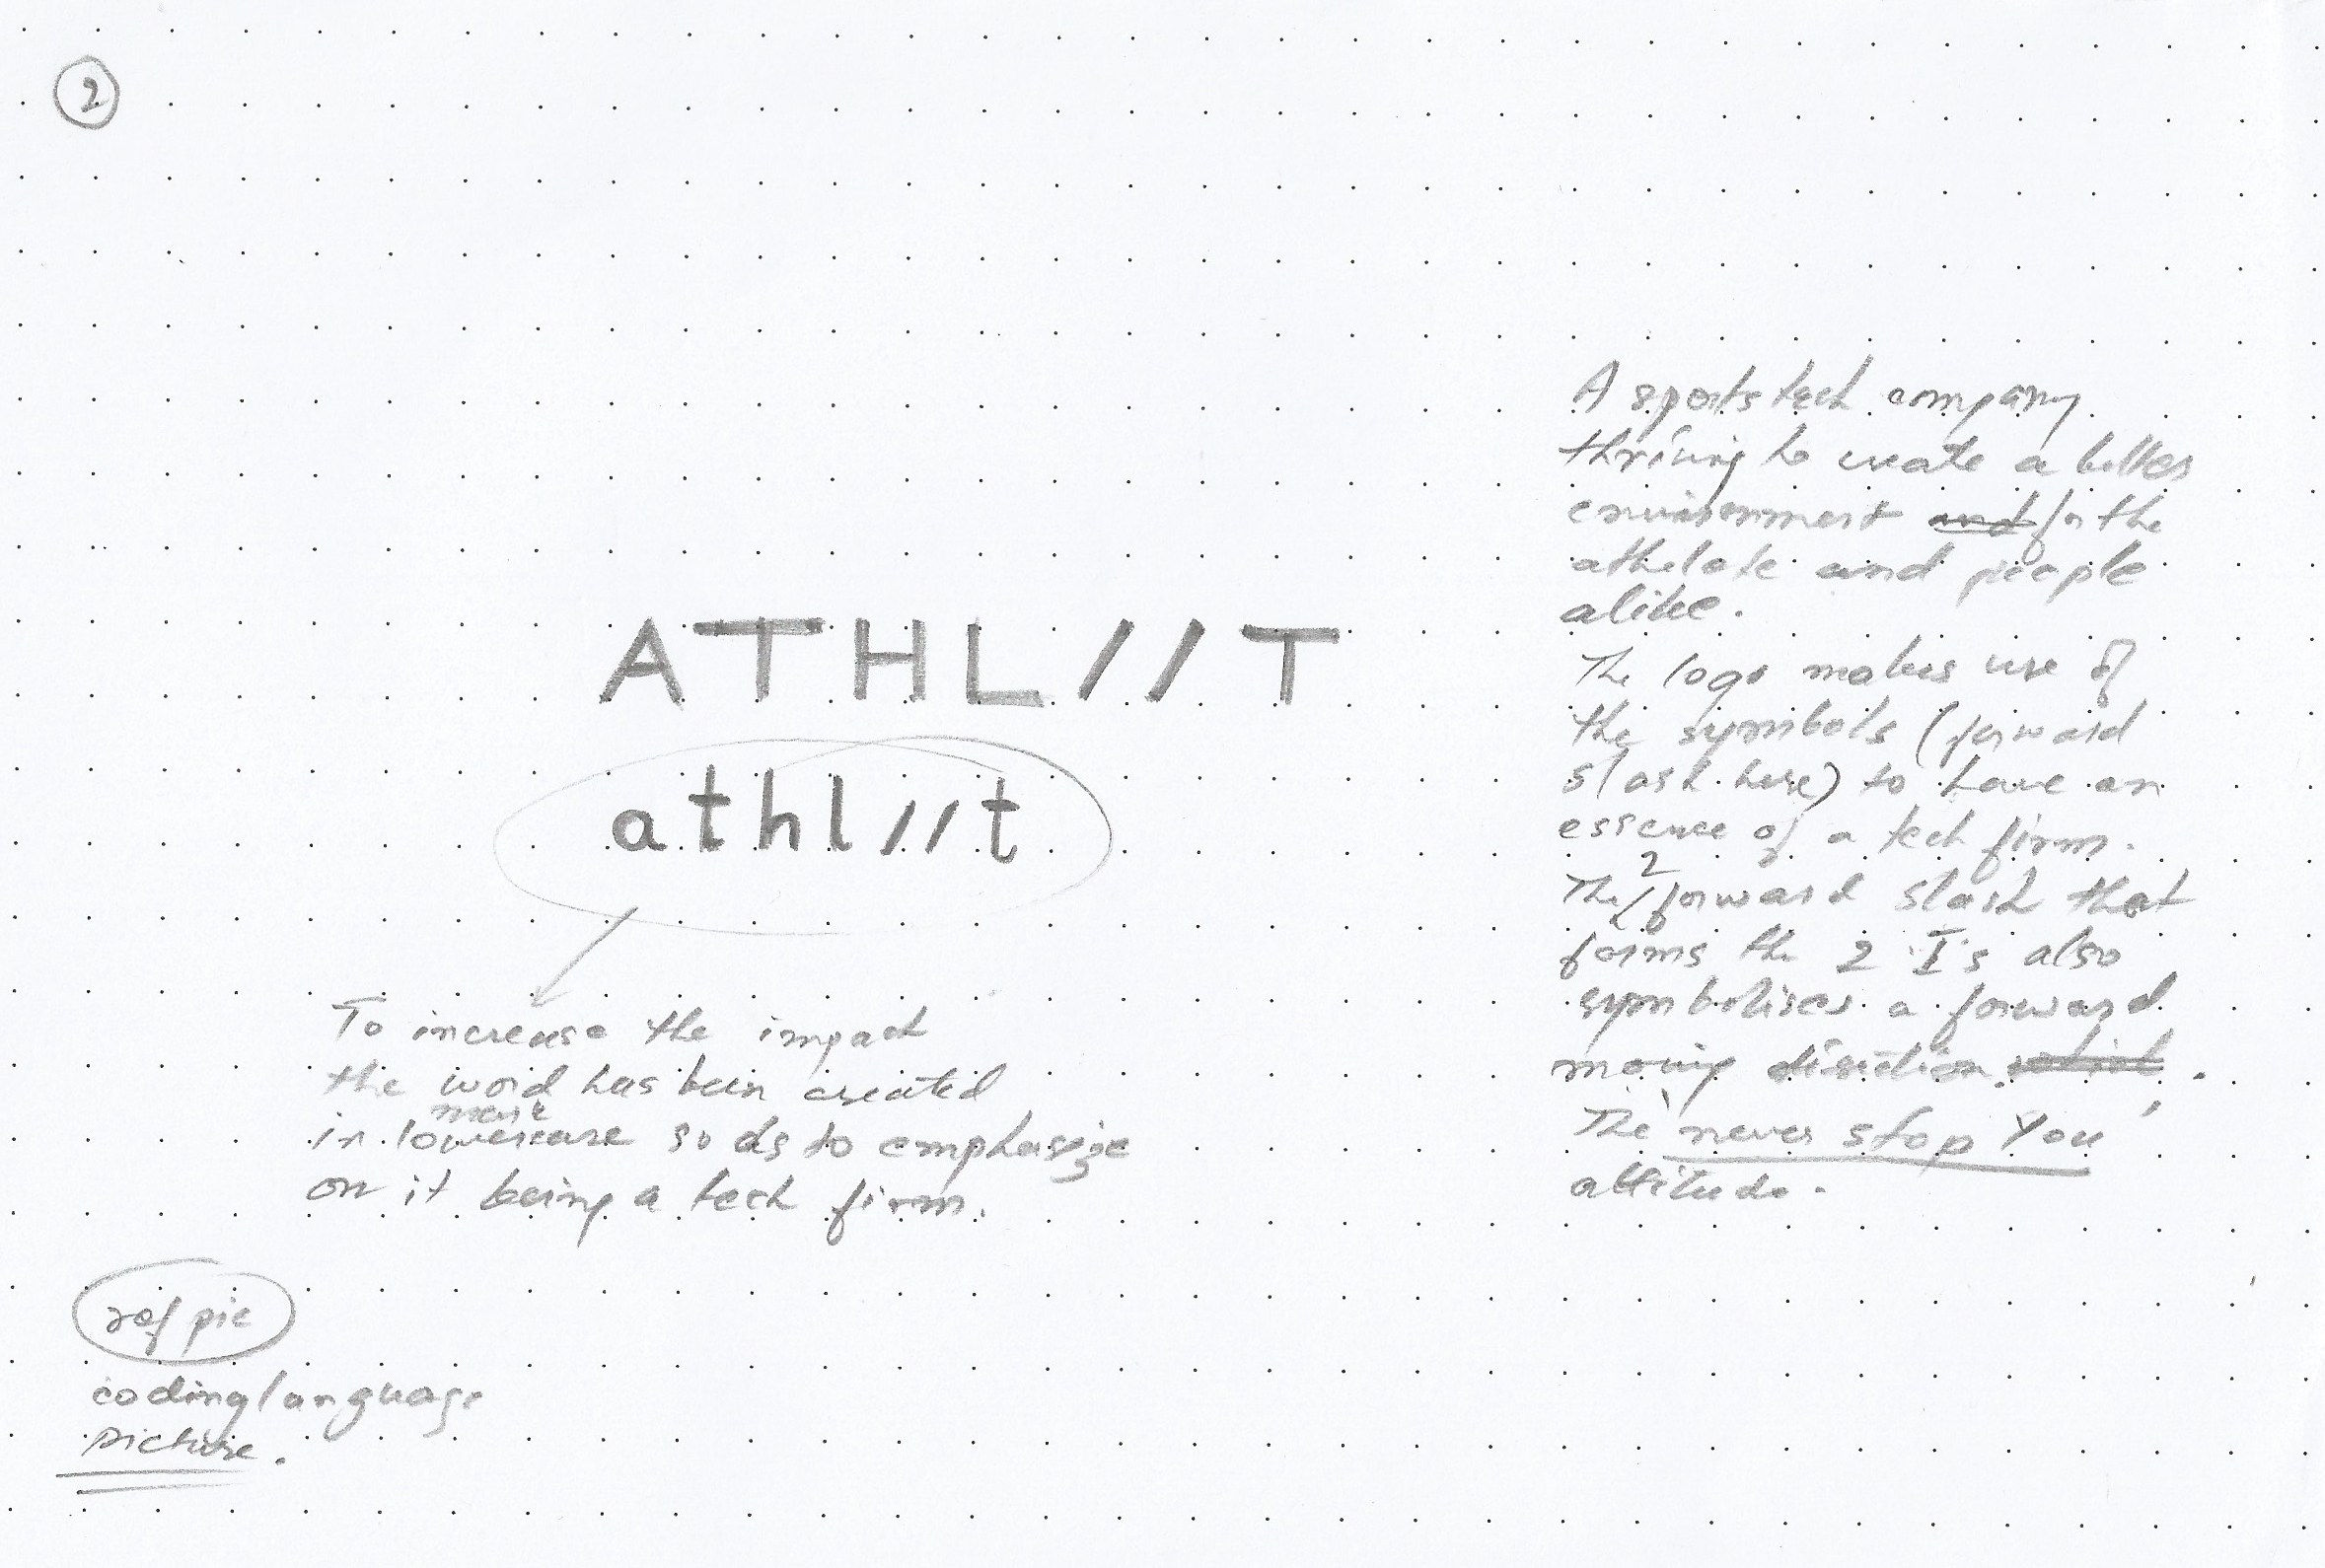 2
ATHL//T
athl//t
To increase the impact
the word has been created
mark
in lowercase so as to emphasize
on it being a tech firm.
ref pic
coding language
picture.
A sports tech company
thriving to create a better
environment and for the
athelate and people
alike.
The logo makes use of
the symbols (forward
slash here) to have an
essence of a tech firm.
2
The forward slash that
forms the 2 I's also
symbolises a forward
moving direction.
The 'never stop You'
attitude.